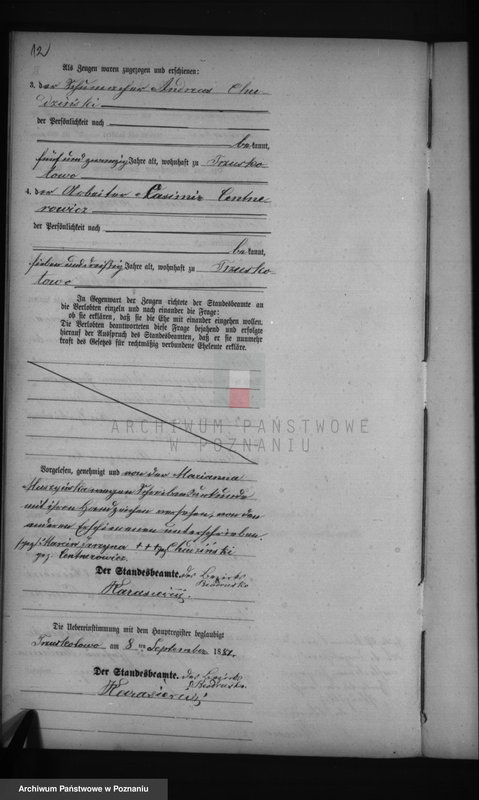 12
Als Zeugen waren zugezogen und erschienen:
3. der Schumacher Andreas Chu-
dziński
der Persönlichkeit nach
be kannt,
fünf und zwanzig Jahre alt, wohnhaft zu Trzusko-
towo
4. der Arbeiter Casimir Centne-
rowicz
der Persönlichkeit nach
be kannt,
sieben und dreißig Jahre alt, wohnhaft zu Trzusko-
towo
In Gegenwart der Zeugen richtete der Standesbeamte an
die Verlobten einzeln und nach einander die Frage:
ob sie erklären, daß sie die Ehe mit einander eingehen wollen.
Die Verlobten beantworteten diese Frage bejahend und erfolgte
hierauf der Ausspruch des Standesbeamten, daß er sie nunmehr
kraft des Gesetzes für rechtmäßig verbundene Eheleute erkläre.
ARCHIWUM PAŃSTWOWE
W POZNANIU
Vorgelesen, genehmigt und von der Marianna
wegen Schreibensunkunde
mit ihrem Handzeichen versehen, von den
anderen Erschienenen unterschrieben
gez. Marcin +++
gez. Centnerowicz
Der Standesbeamte. des Bezirks
Biedrusko
Karasiewicz
Die Uebereinstimmung mit dem Hauptregister beglaubigt
am 8 ten September 1881.
Der Standesbeamte. des Bezirks
Biedrusko
Karasiewicz
Archiwum Państwowe w Poznaniu